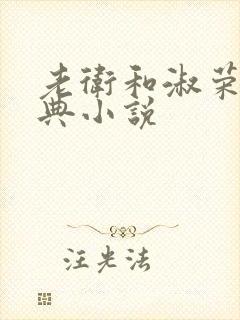 老衛和淑荣
典小説
汪光法